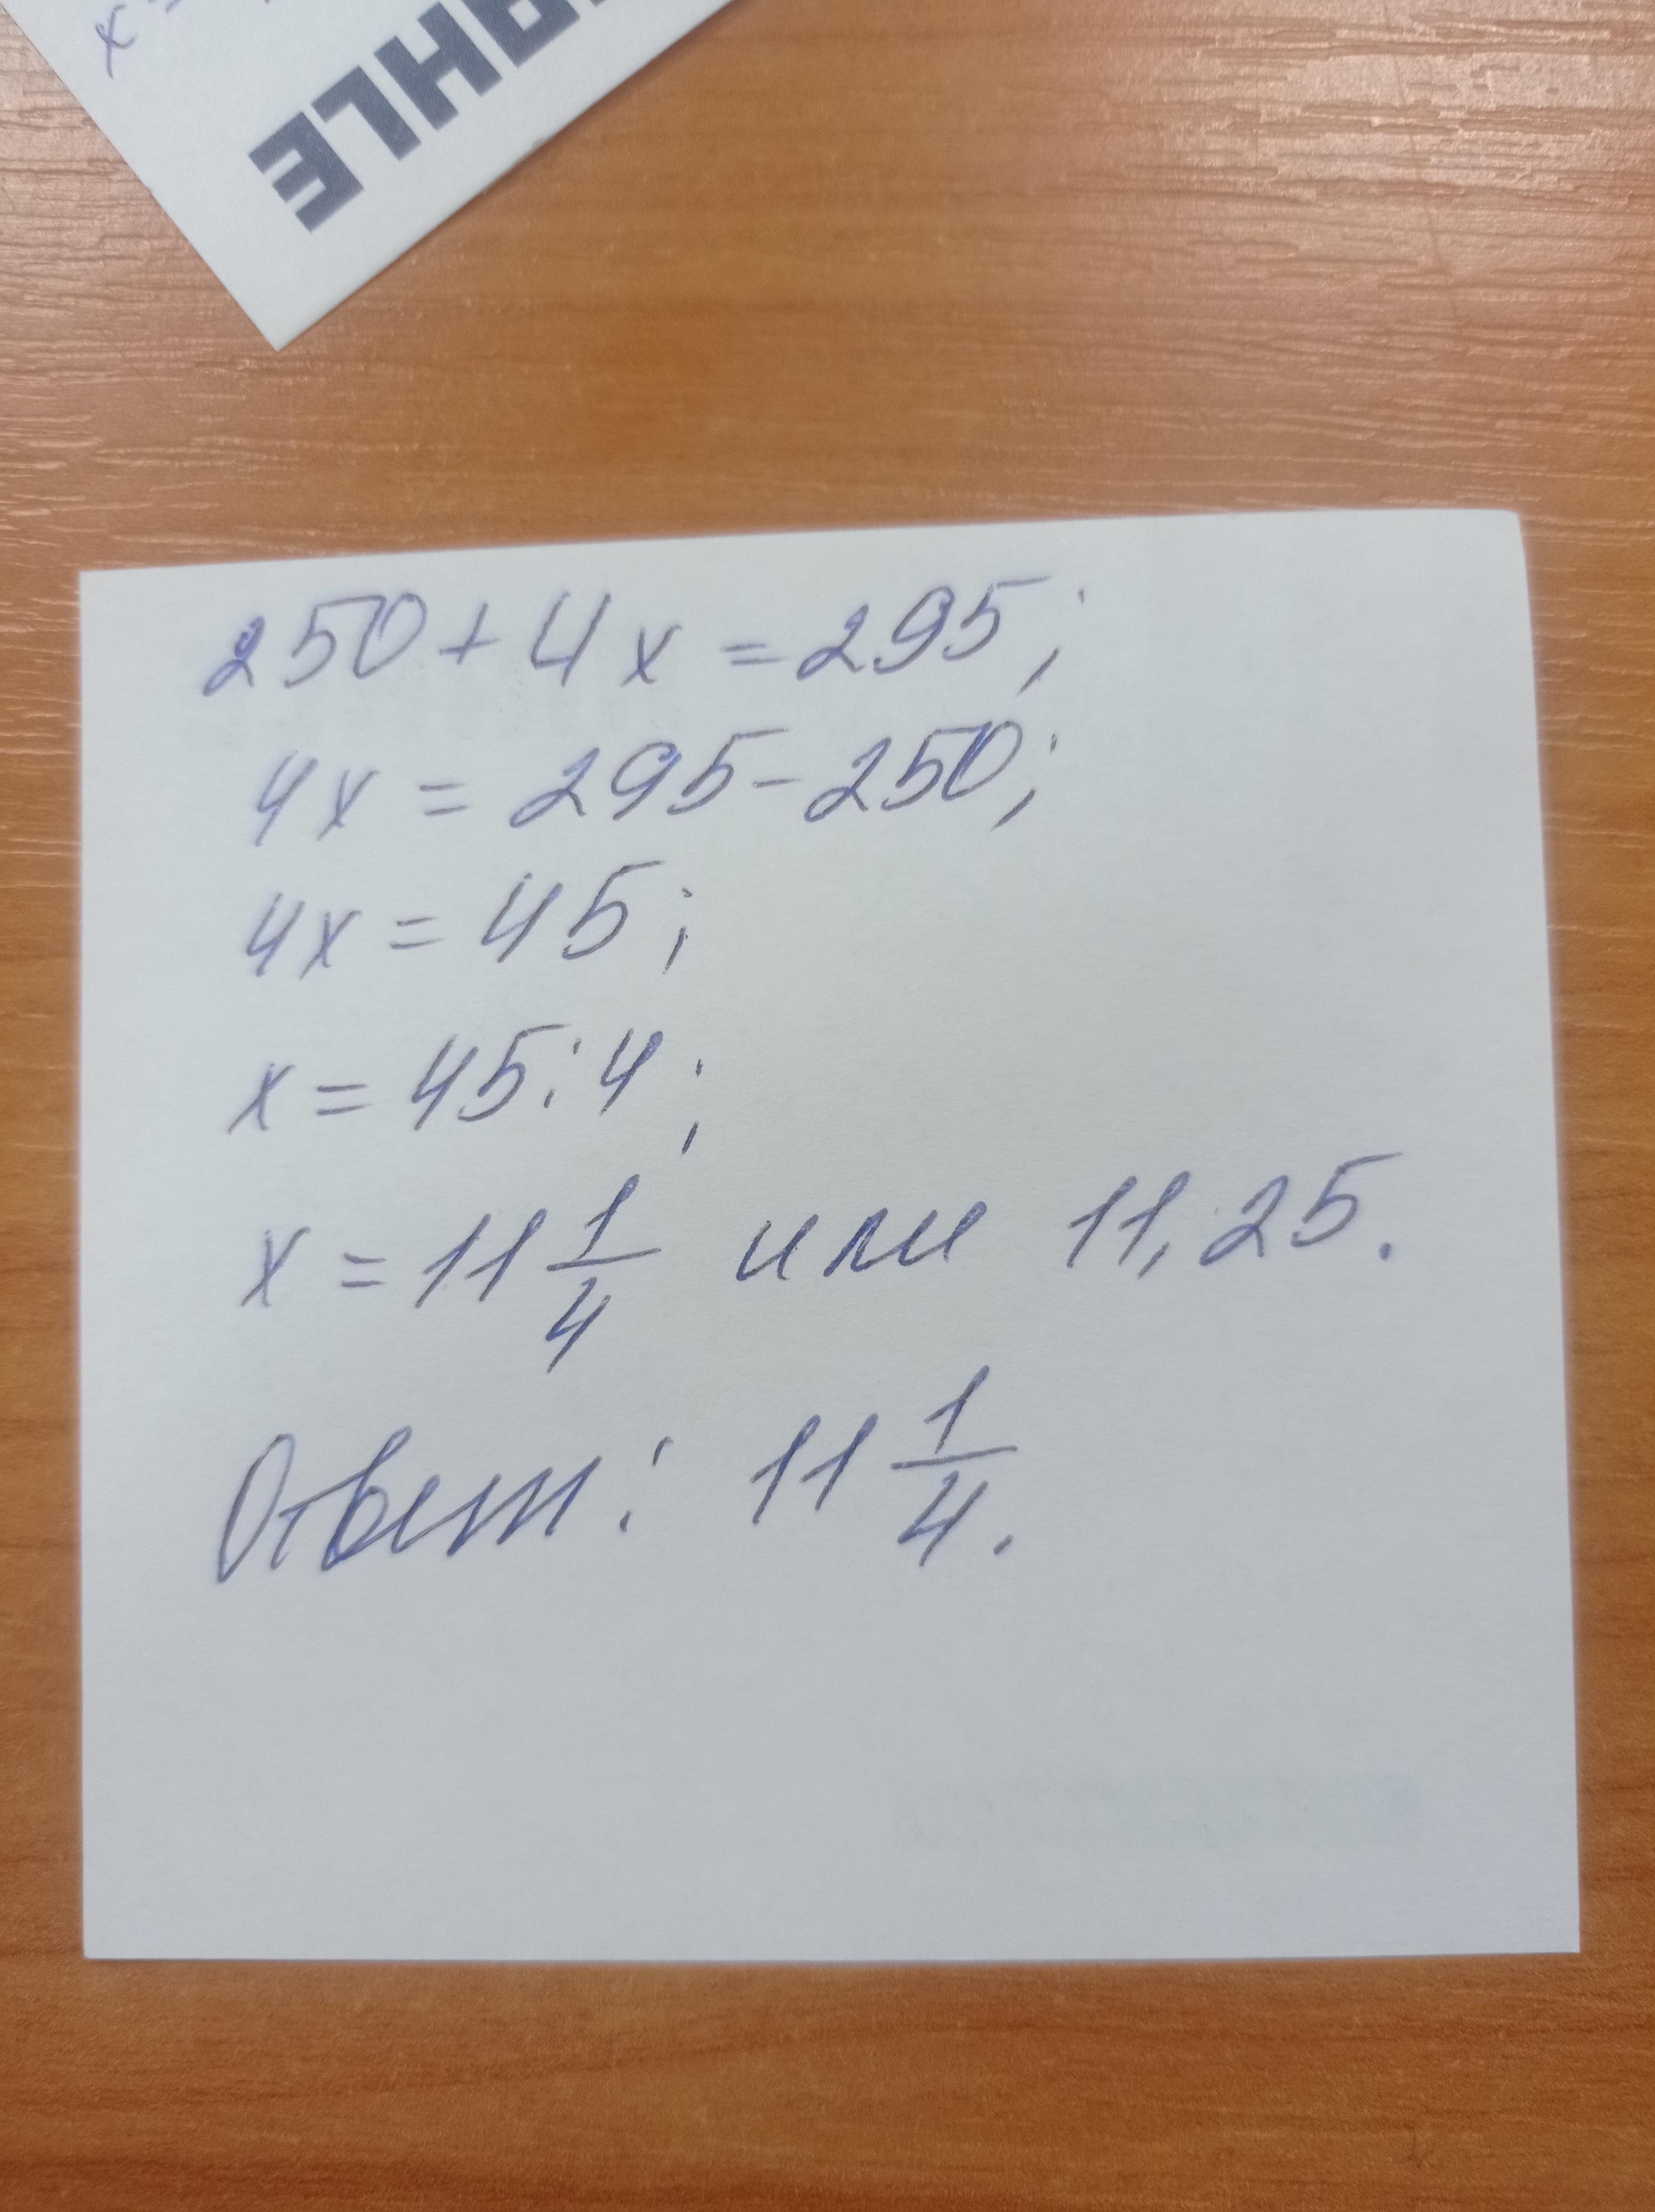 250 + 4x = 295;
4x = 295 - 250;
4x = 45;
x = 45 : 4;
x = 11 1/4 или 11,25.
Ответ: 11 1/4.